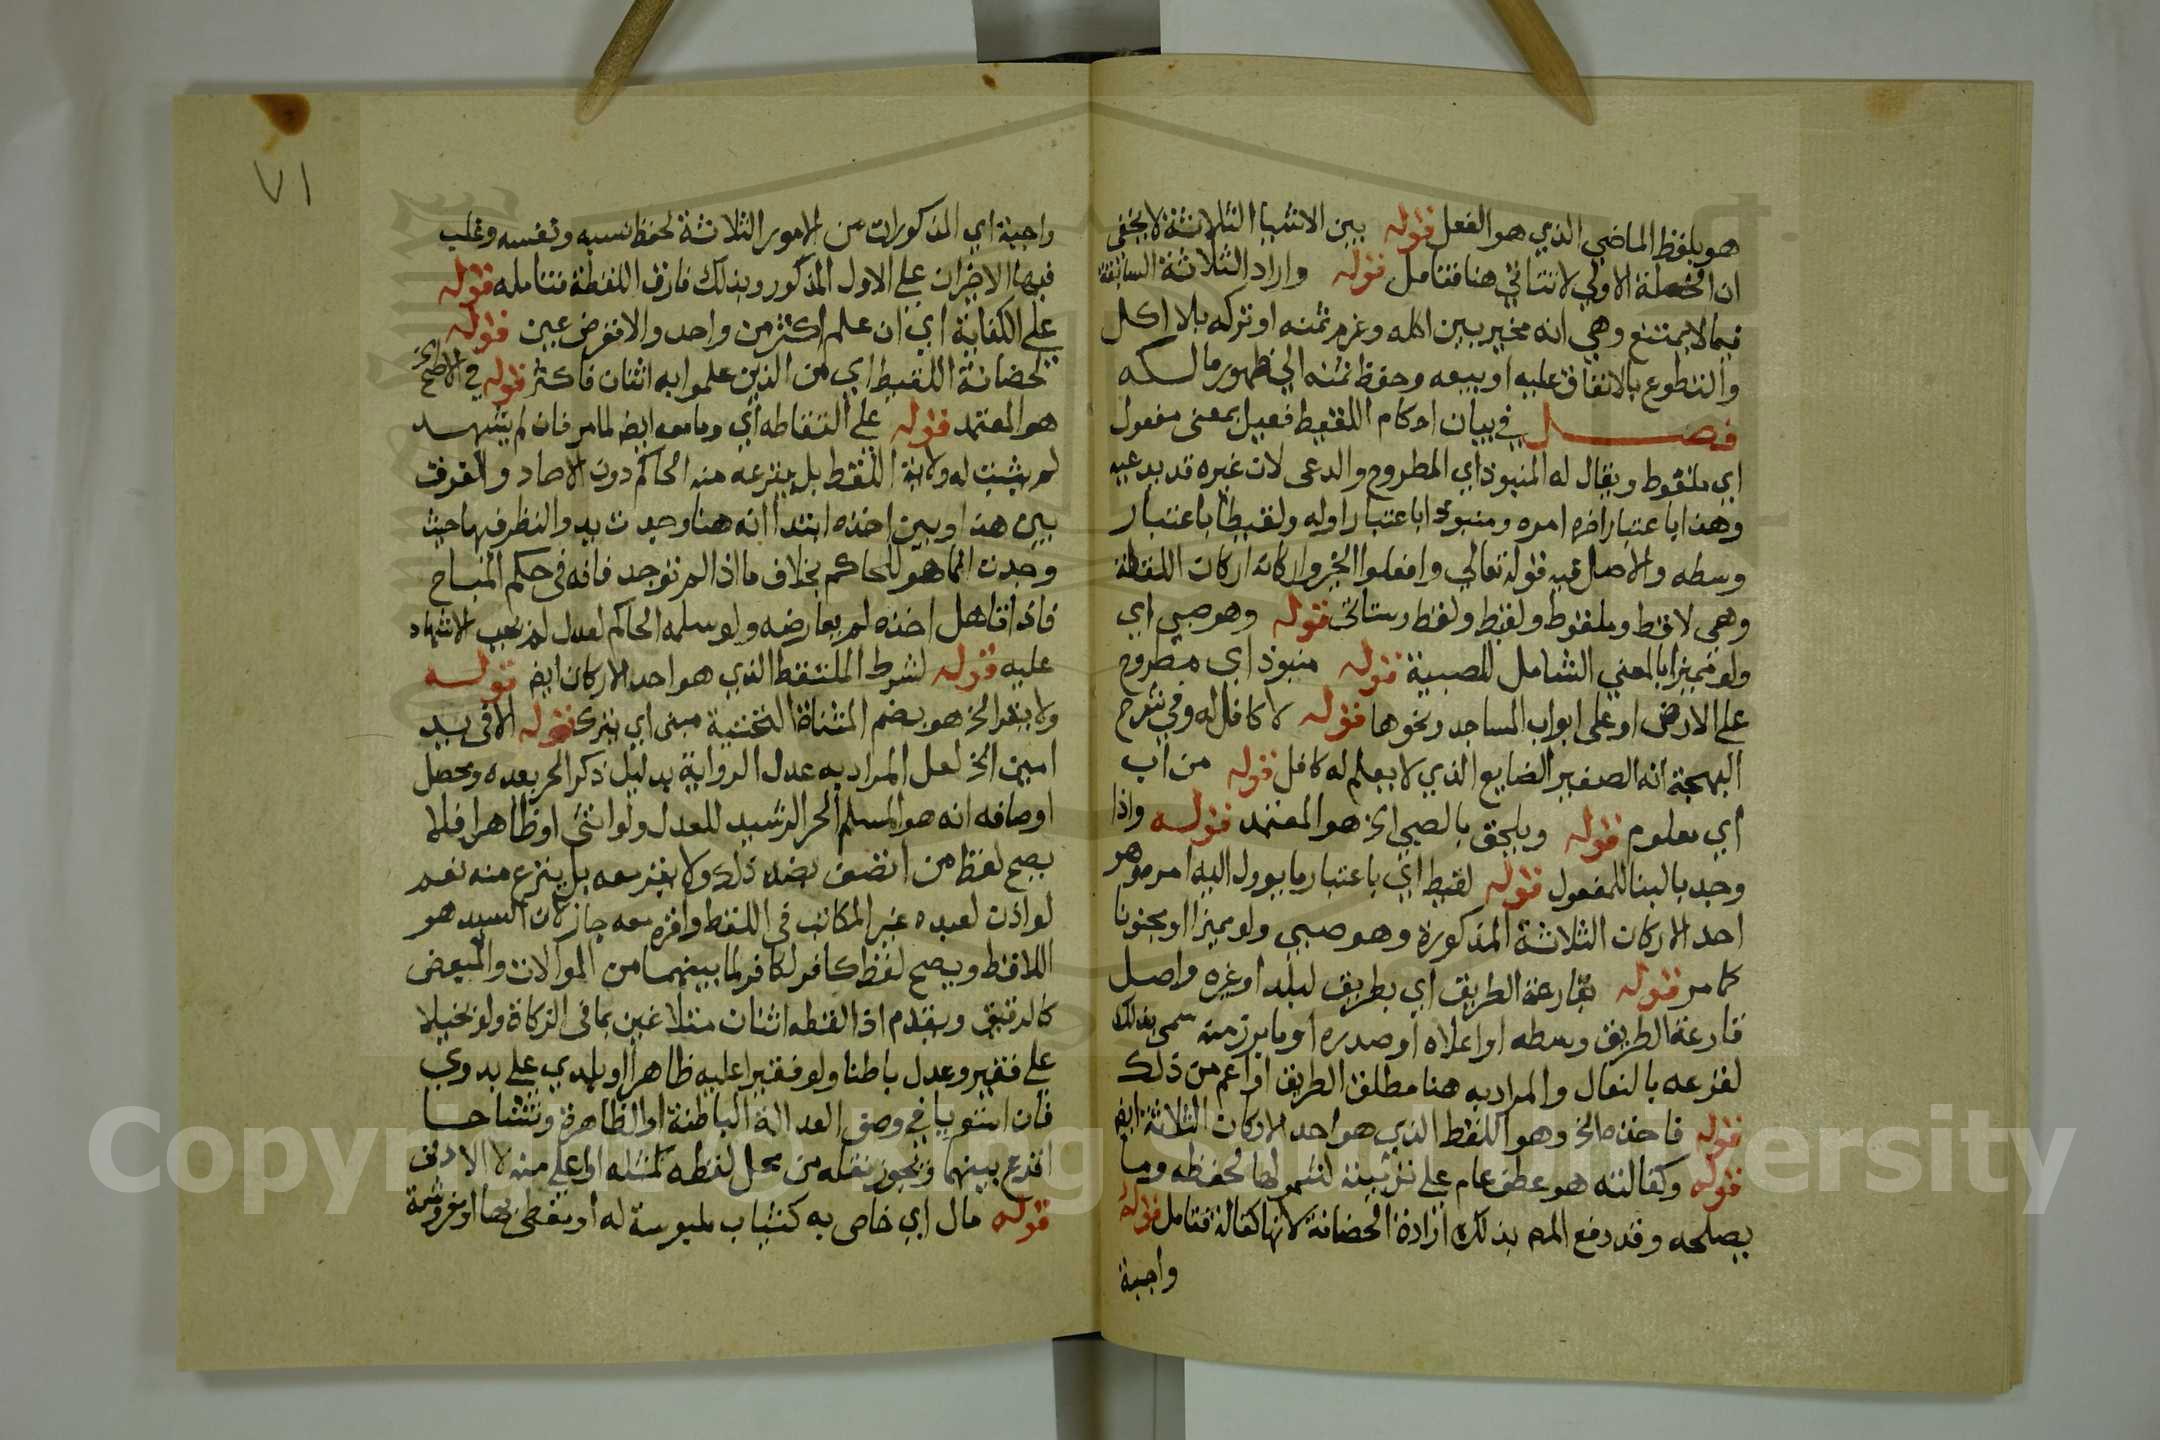 هو بلفظ الماضي الذي هو الفعل قوله بين الاشيا الثلاثة لا يخفى
ان الخصلة الاولي لا تتاتي هنا فتامل قوله واراد الثلاثة السابقة
فيما لا يمتنع وهي انه مخير بين اكله وغرم ثمنه او تركه بلا اكل
والتطوع بالانفاق عليه او بيعه وحفظ ثمنه الي ظهور مالكه
فصل في بيان احكام اللقيط فعيل بمعنى مفعول
اي ملقوط ويقال له المنبوذ اي المطروح والدعى لان غيره قد يدعيه
وهذا باعتبار اخر امره ومنبوذا باعتبار اوله ولقيطا باعتبار
وسطه والاصل فيه قوله تعالي وافعلوا الخير واركانه اركان اللقطة
وهي لاقط وملقوط ولقط ولفظ وستاتى قوله وهو صبي اي
ولو مميزا بالمعني الشامل للصبية قوله منبوذ اي مطروح
على الارض او على ابواب المساجد ونحوها قوله لا كافل له وفي شرح
البهجة انه الصغير الضايع الذي لا يعلم له كافل قوله من اب
اي معلوم قوله ويلحق بالصبي الخ هو المعتمد قوله واذا
وجد بالبنا للمفعول قوله لقيط اي باعتبار ما يوول اليه امره وهو
احد الاركان الثلاثة المذكورة وهو صبي ولو مميزا او مجنونا
كما مر قوله بقارعة الطريق اي بطريق لبلد او غيره واصل
قارعة الطريق وسطه او اعلاه او صدره او ما برز منه سمي بذلك
لقرعه بالنعال والمراد به هنا مطلق الطريق او اعم من ذلك
قوله فاخذه الخ وهو اللقط الذي هو احد الاركان الثلاثة ايض
قوله وكفالته هو عطف عام على تربيته لشمولها لحفظه وما
يصلحه وقد دفع المص بذلك ارادة الحضانة لانها كفالة فتامل قوله
واجبة
٧١
واجبة اي المذكورات من الامور الثلاثة لحفظ نسبه ونفسه وغلب
فيها الاخيران علي الاول المذكور وبذلك فارق اللقطة فتامله قوله
علي الكفاية اي ان علم اكثر من واحد والا ففرض عين قوله
لحضانة اللقيط اي من الذين علموا به اثنان فاكثر قوله في الاصح الخ
هو المعتمد قوله على التقاطه اي وما معه ايض لما مر فان لم يشهد
لم يثبت له ولاية اللقط بل ينزعه منه الحاكم دون الاحاد والفرق
بين هذا وبين اخذه ابتدا انه هنا وجدت يد والنظر فيها حيث
وجدت انما هو للحاكم بخلاف ما اذا لم توجد فانه في حكم المباح
فاذا تاهل اخذه لم يعارضه ولو سلمه الحاكم لعدل لم يجب الاشهاد
عليه قوله لشرط الملتقط الذي هو احد الاركان ايض قوله
ولا يقر الخ هو بضم المثناة التحتية مبنى اي يترك قوله الا في يد
امين الخ لعل المراد به عدل الرواية بدليل ذكر الحر بعده ومحصل
اوصافه انه هو المسلم الحر الرشيد للعدل ولو انثى او ظاهرا فلا
يصح لقط من اتصف بضد ذلك ولا يقر معه بل ينزع منه نعم
لو اذن لعبده غير المكاتب في اللقط واقره معه جاز لان السيد هو
اللاقط ويصح لقط كافر لكافر لما بينهما من الموالات والمبعض
كالرقيق ويقدم اذا لقطه اثنان مثلا غني بما في الزكاة ولو بخيلا
على فقير وعدل باطنا ولو فقيرا عليه ظاهرا وبلدي على بدوي
فان استويا في وصف العدالة الباطنة او الظاهرة وتشاحا
اقرع بينهما ويجوز نقله من محل لقطه لمثله او اعلى منه لا الادون
قوله مال اي خاص به كثياب ملبوسة له او مغطى بها او مفروشة
Copyright © King Saud University